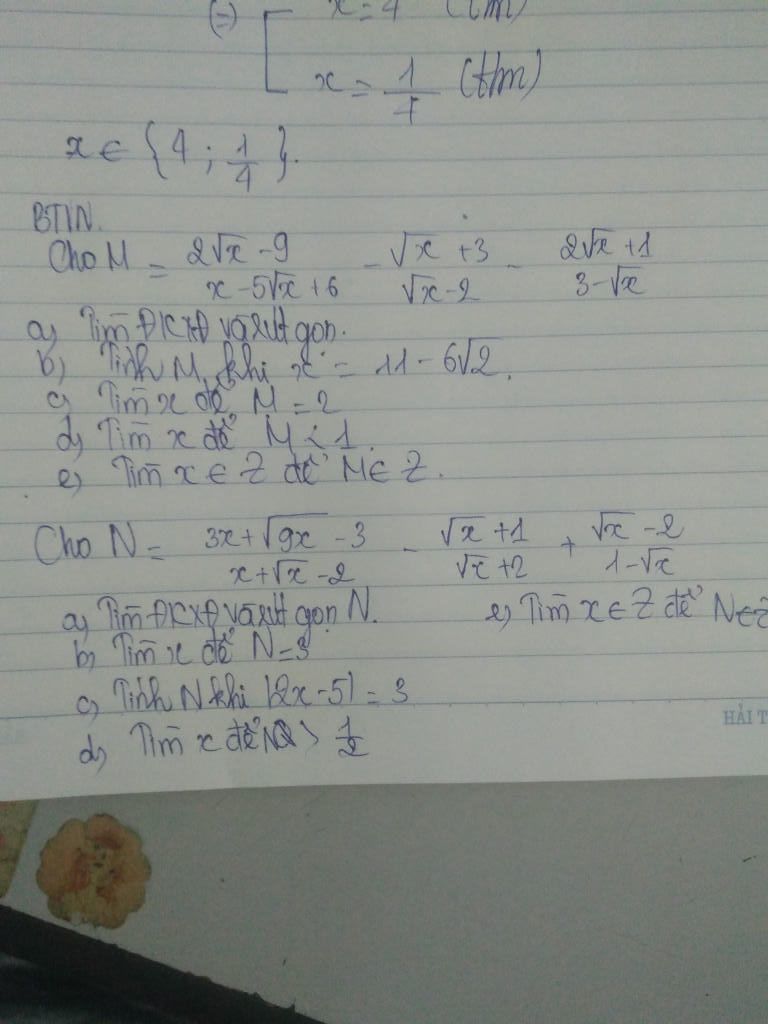 (=) [ x = 4 (tm)
x = 1/4 (tm)
x ∈ {4 ; 1/4}.
BTVN.
Cho M = (2√x - 9)/(x - 5√x + 6) - (√x + 3)/(√x - 2) - (2√x + 1)/(3 - √x)
a) Tìm ĐKXĐ và rút gọn.
b) Tính M khi x = 11 - 6√2.
c) Tìm x để M = 2
d) Tìm x để M < 1.
e) Tìm x ∈ Z để M ∈ Z.
Cho N = (3x + √9x - 3)/(x + √x - 2) - (√x + 1)/(√x + 2) + (√x - 2)/(1 - √x)
a) Tìm ĐKXĐ và rút gọn N. e) Tìm x ∈ Z để N ∈ Z
b) Tìm x để N = 3
c) Tính N khi |2x - 5| = 3
d) Tìm x để N > 1/2
HẢI T